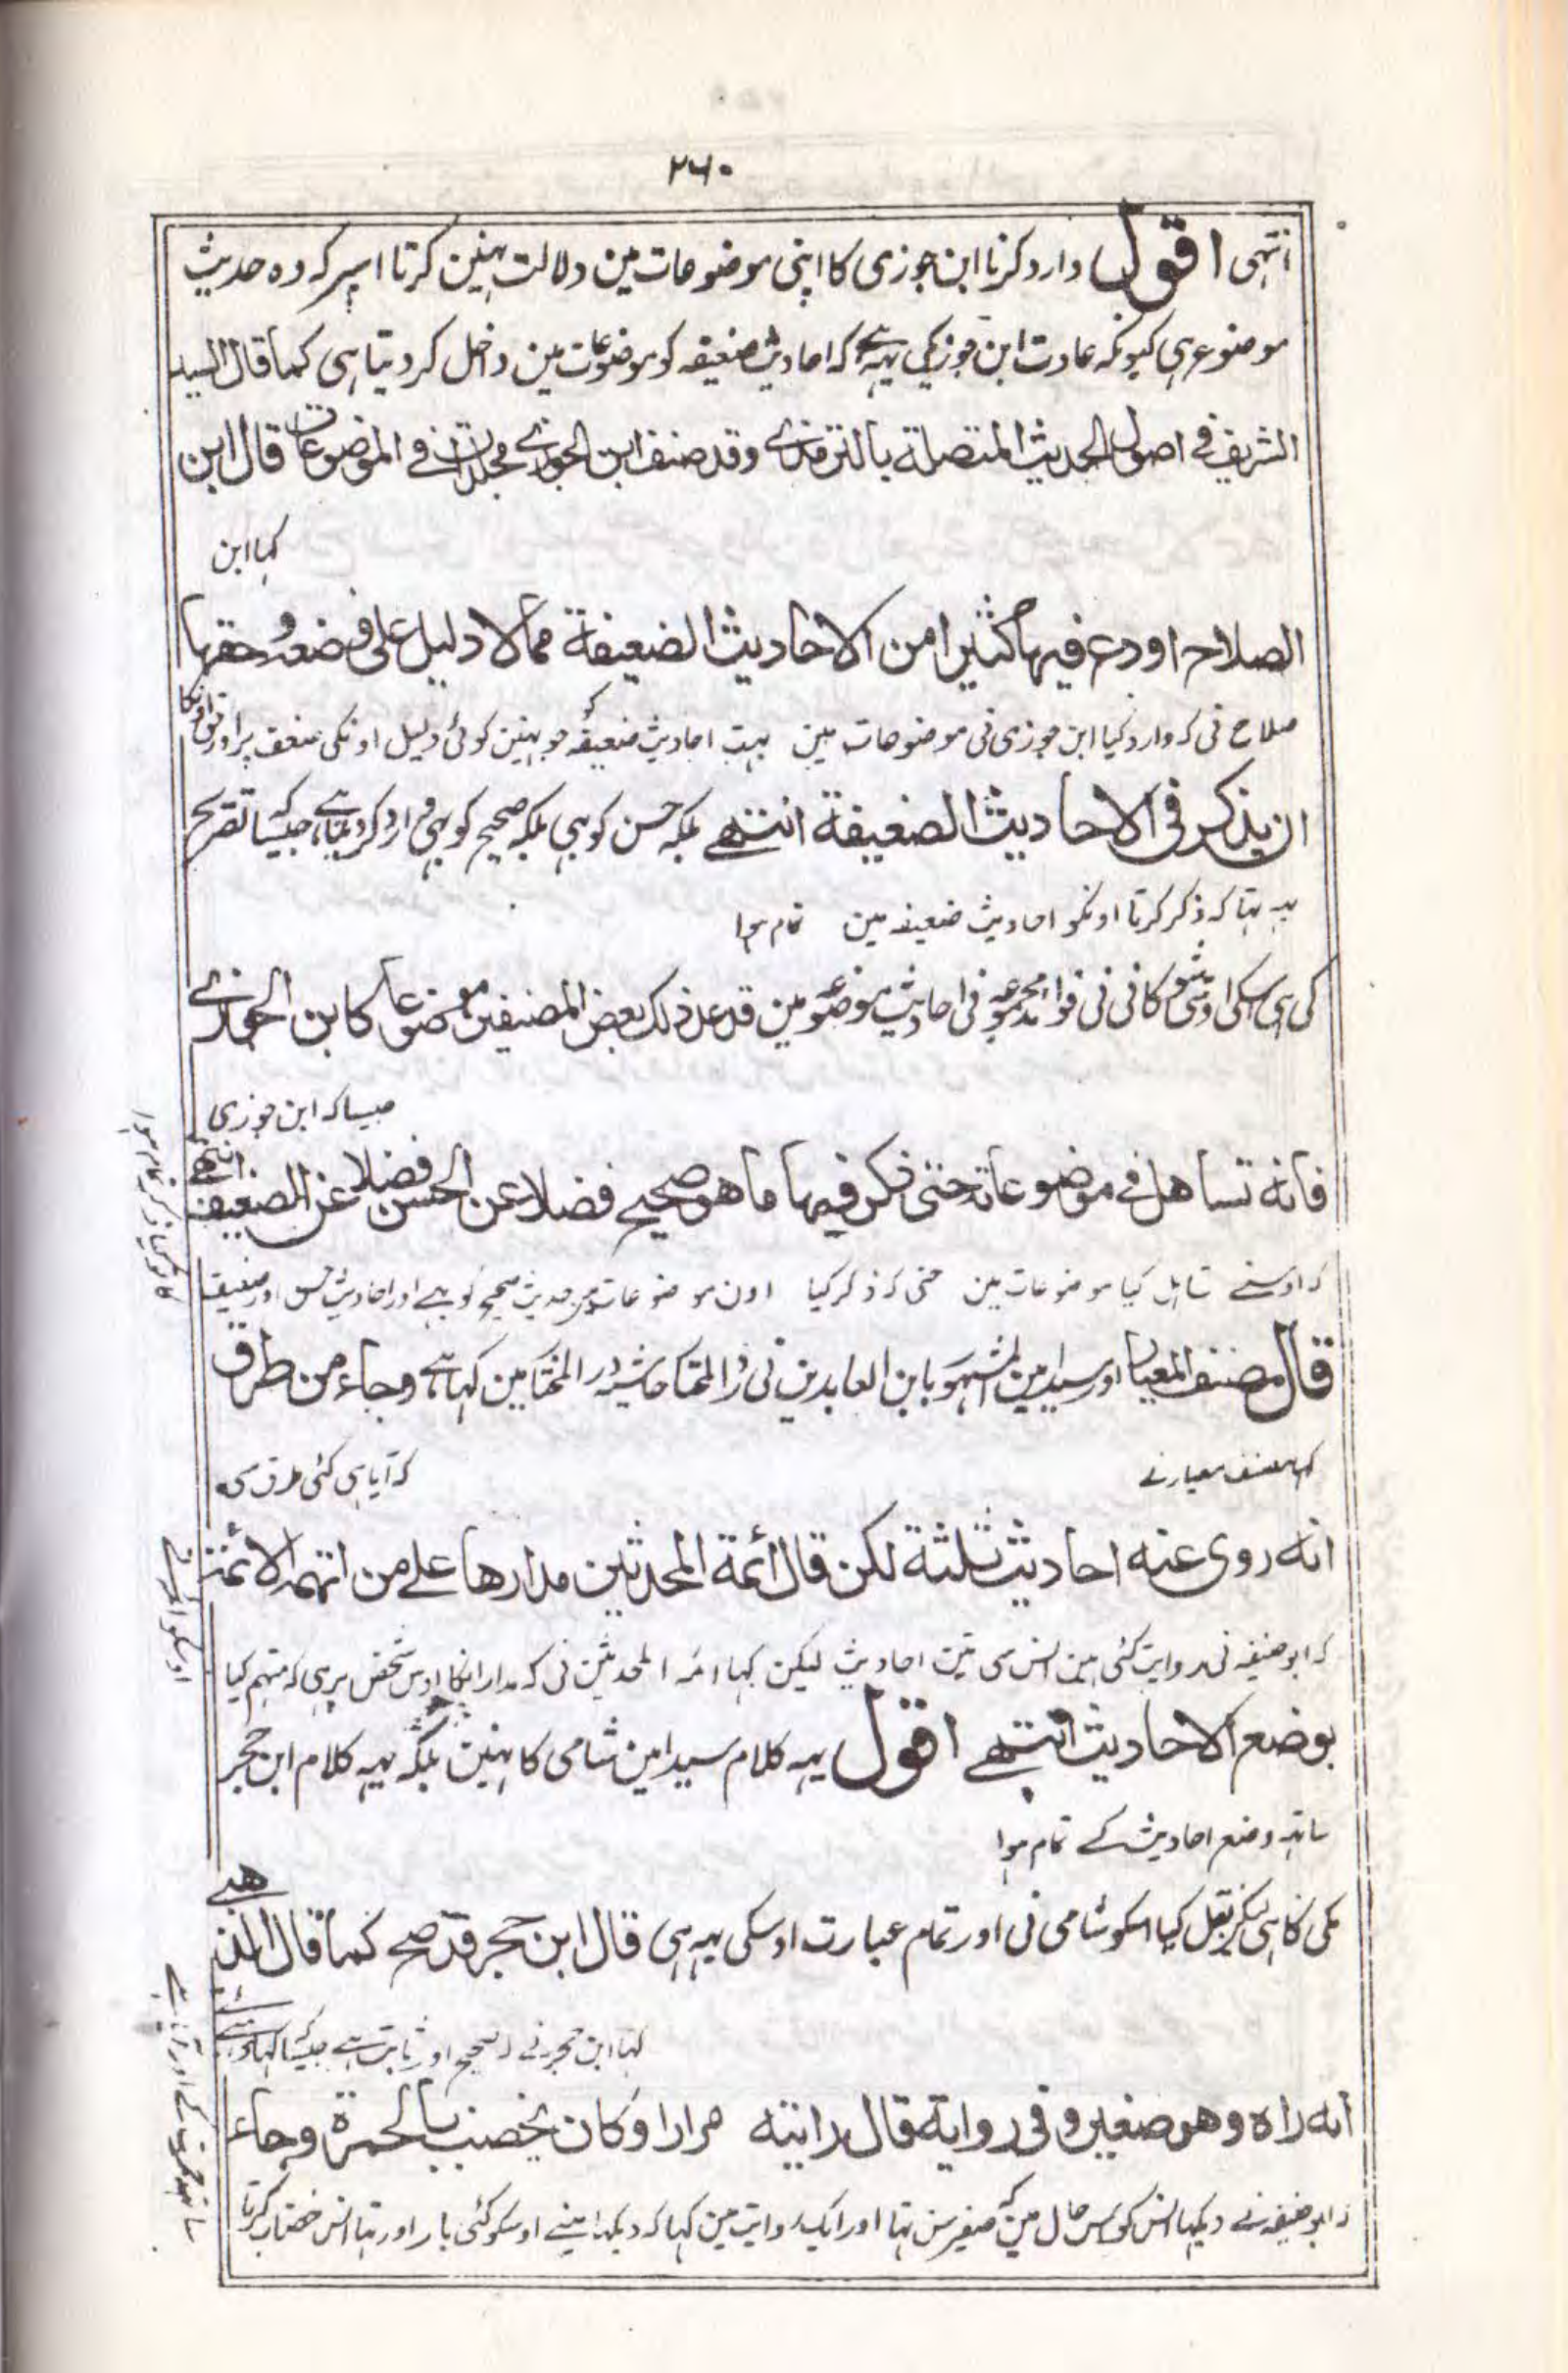 ۲۶۰
انتہی اقول وارد کرنا ابن جوزی کا اپنی موضوعات مین دلالت نہین کرتا اسپر کہ وہ حدیث
موضوع ہی کیونکہ عادت ابن جوزیکی یہہ ہے کہ احادیث ضعیفہ کو موضوعات مین داخل کر دیتا ہی کما قال السید
الشریف فے اصول الحدیث المتصلة بالترمذے وقد صنف ابن الجوزے مجلدات فے الموضوعات قال ابن
کہا ابن
الصلاح اودع فیہا کثیرا من الاحادیث الضعیفة مما لا دلیل علی وضعہ وحقہا
صلاح نی کہ وارد کیا ابن جوزی نی موضوعات مین بہت احادیث ضعیفہ کو جو نہین کوئی دلیل اونکی ضعف پر اور لائق اونکا
ان یذکر فی الاحادیث الضعیفة انتہے بلکہ حسن کو بہی بلکہ صحیح کو بہی وارد کر دیتا ہے جیسا کہ تصریح
یہہ تہا کہ ذکر کرتا اونکو احادیث ضعیفہ مین تمام ہوا
کی ہی اسکی شوکانی نی فوائد مجموعہ فی احادیث موضوعہ مین قد عد ذلک بعض المصنفین موضوعا کابن الجوزے
جیسا کہ ابن جوزی
فانہ تساهل فے موضوعاتہ حتی ذکر فیہا ما هو صحیح فضلا عن الحسن فضلا عن الضعیف انتہے
کہ اوسنے تساہل کیا موضوعات مین حتی کہ ذکر کیا اون موضوعات مین حدیث صحیح کو بہے اور احادیث حسن اور ضعیف
کا تو کیا ذکر ہی تمام ہوا
قال مصنف المعیار اور سید امین المشہور بابن العابدین نی رد المختار حاشیہ در المختار مین کہا ہے وجاء من طرق
کہا مصنف معیار نے کہ آیا ہی کئی طرق سی
انہ روی عنہ احادیث ثلثة لکن قال ائمة المحدثین مدارها علے من اتہمہ الائمة
کہ ابو حنیفہ نی روایت کئی ہین انس سی تین احادیث لیکن کہا ائمہ المحدثین نی کہ مدار انکا اوس شخص پر ہی کہ متہم کیا
اوسکو ائمہ نے
بوضع الاحادیث انتہے اقول یہہ کلام سید امین شامی کا نہین بلکہ یہہ کلام ابن حجر
ساتہہ وضع احادیث کے تمام ہوا
مکی کا ہی لیکن نقل کیا اسکو شامی نی اور تمام عبارت اوسکی یہہ ہی قال ابن حجر قد صح کما قال الذهبے
کہا ابن حجر نے صحیح اور ثابت ہے جیسا کہ کہا ذہبے نے
انہ راہ وهو صغیر وفی روایة قال رایتہ مرارا وکان یخضب بالحمرة وجاء
کہ ابو حنیفہ نے دیکہا انس کو اس حال مین کہ صغیر سن تہا اور ایک روایت مین کہا کہ دیکہا مینے اوسکو کئی بار اور تہا انس خضاب کرتا
ساتہہ حمرت کے اور آیا ہے